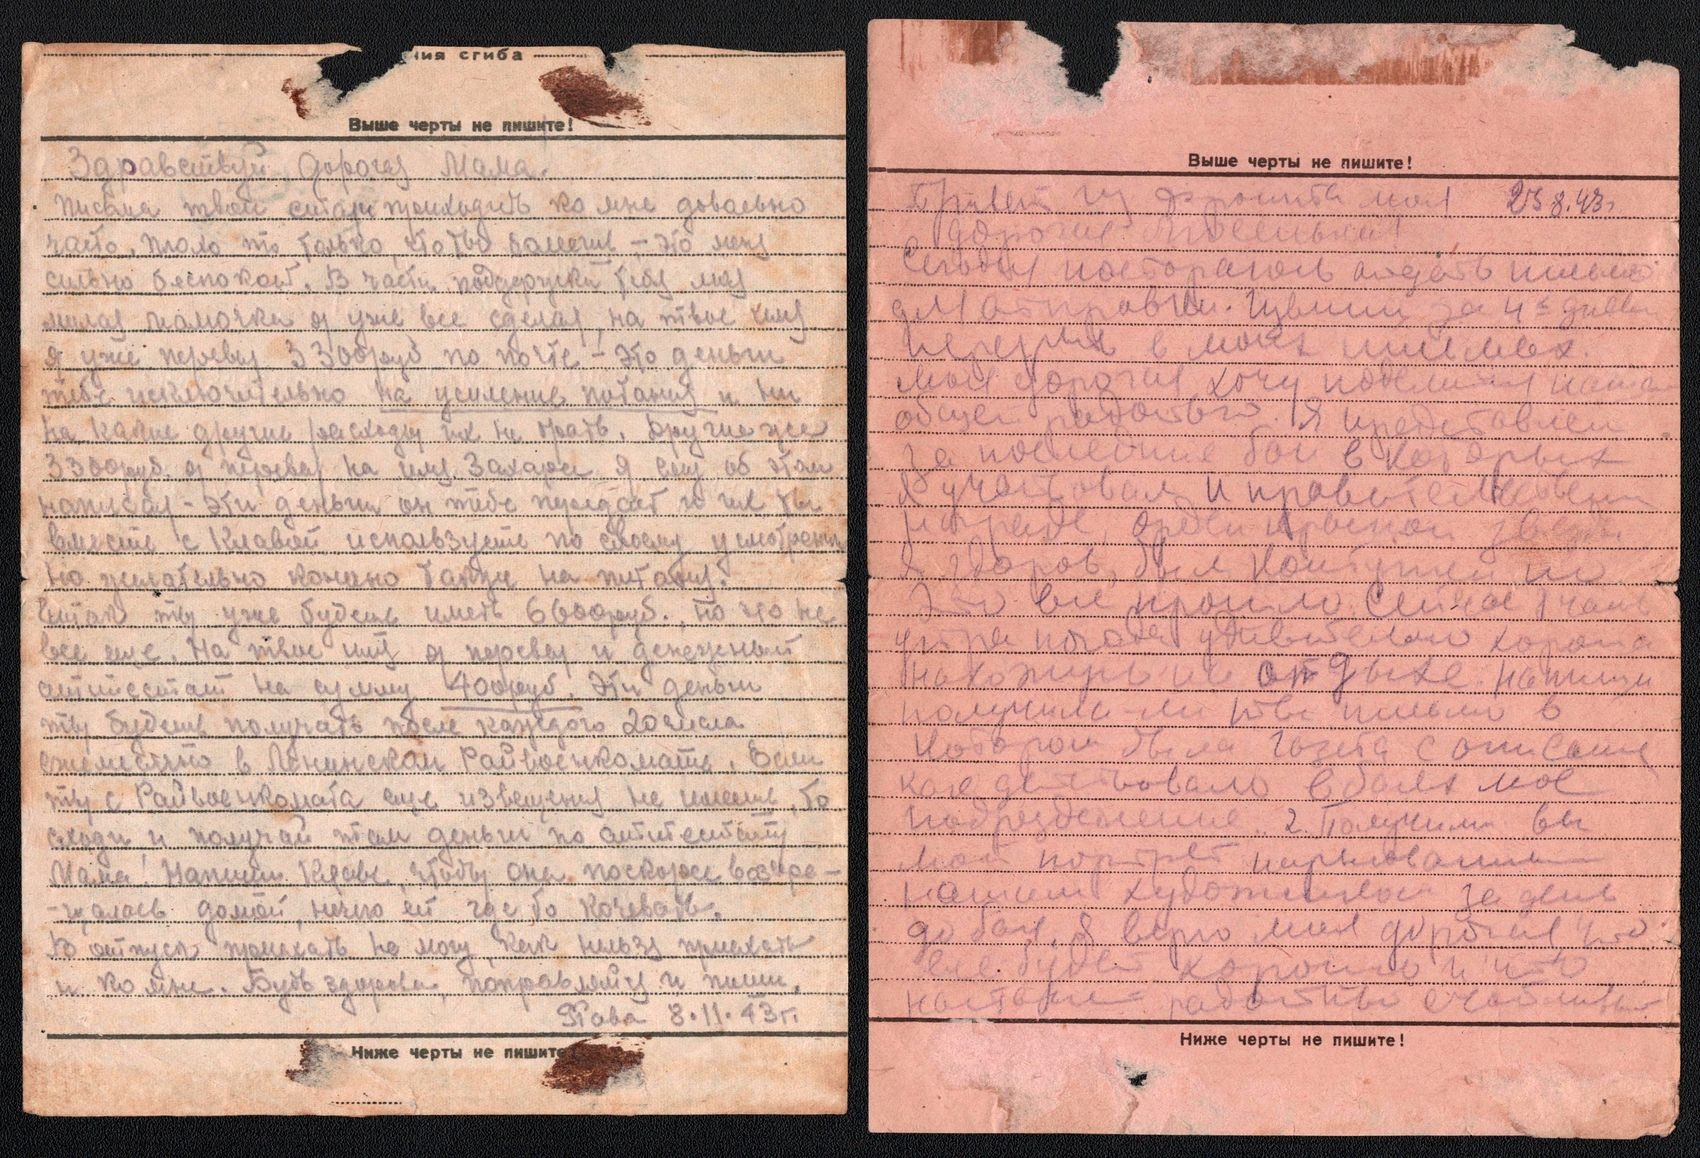 ния сгиба
Выше черты не пишите!
Здравствуй, дорогая Мама.
Письма твои стали приходить ко мне довольно
часто, плохо то только, что ты болеешь – это меня
сильно беспокоит. В части поддержки тебя моя
милая мамочка я уже все сделал, на твое имя
я уже перевел 3300руб по почте – это деньги
тебе исключительно на усиление питания и ни
на какие другие расходы их не трать. Другие же
3300руб. я перевел на имя Захара. Я ему об этом
написал – эти деньги он тебе передаст и их ты
вместе с Клавой используете по своему усмотрению
но желательно конечно также на питание.
Итак ты уже будешь иметь 6600руб., но это не
все еще. На твое имя я перевел и денежный
аттестат на сумму 400руб. Эти деньги
ты будешь получать после каждого 20 числа
ежемесячно в Ленинском Райвоенкомате. Если
ты с Райвоенкомата еще извещения не имеешь, то
сходи и получай там деньги по аттестату
Мама! Напиши Клаве, чтобы она поскорее возвра-
-щалась домой, нечего ей где то кочевать.
В отпуск приехать не могу, как нельзя приехать
и ко мне. Будь здорова, поправляйся и пиши.
8.11.43г.
Ниже черты не пишите
Выше черты не пишите!
Привет из фронта моя 25.8.43г.
дорогая
Сегодня постараюсь отдать письмо
для отправки. за 4е дня
перерыв в моих письмах.
Моя дорогая хочу поделиться нашей
общей радостью. Я представлен
за последние бои в которых
я участвовал к правительственной
награде орден красной звезды
Я здоров, был контужен но
это все прошло. Сейчас
утра погода удивительно хороша
нахожусь на отдыхе. Напиши
получила-ли ты письмо в
котором была газета с описанием
как действовало в боях мое
подразделение. 2. Получили вы
мой портрет нарисованный
нашим художником за день
до боя. Я верю моя дорогая, что
все будет хорошо и что
настанет радостно счастливый
Ниже черты не пишите!